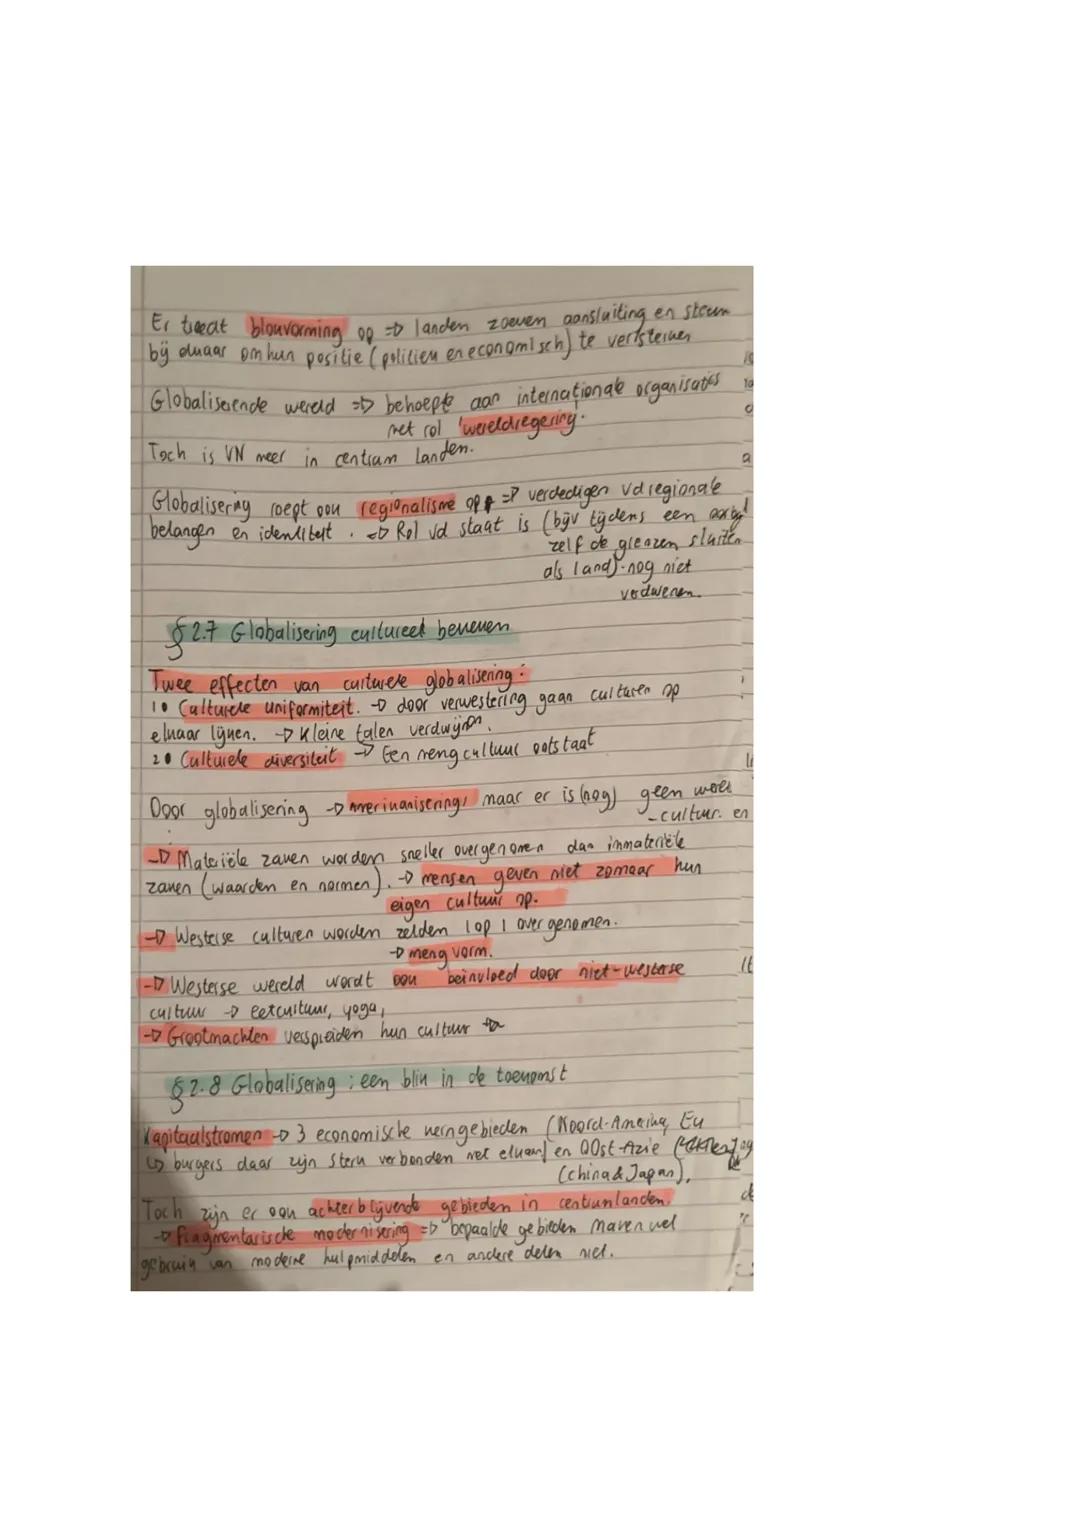 Er treedt blokvorming op => landen zoeken aansluiting en steun
bij elkaar om hun positie (politiek en economisch) te versterken
Globaliserende wereld => behoefte aan internationale organisaties
met rol 'wereldregering'.
Toch is VN meer in centrum landen.
Globalisering roept ook regionalisme op => verdedigen vd regionale
belangen en identiteit. => Rol vd staat is (bijv tijdens een
zelf de grenzen sluiten
als land) nog niet
verdwenen.
§ 2.7 Globalisering cultureel bekeken
Twee effecten van culturele globalisering:
1• Culturele uniformiteit. -> door verwestering gaan culturen op
elkaar lijken. -> Kleine talen verdwijnen.
2• Culturele diversiteit -> Een mengcultuur ontstaat
Door globalisering -> amerikanisering, maar er is (nog) geen wereld
-cultuur. en
-> Materiële zaken worden sneller overgenomen dan immateriële
zaken (waarden en normen). -> mensen geven niet zomaar hun
eigen cultuur op.
-> Westerse culturen worden zelden 1 op 1 overgenomen.
-> meng vorm.
-> Westerse wereld wordt ook beinvloed door niet-westerse
cultuur -> eetcultuur, yoga,
-> Grootmachten verspreiden hun cultuur
§ 2.8 Globalisering: een blik in de toekomst
Kapitaalstromen -> 3 economische kerngebieden (Noord-Amerika, Eu
↳ burgers daar zijn sterk verbonden met elkaar) en Oost-Azie
(China & Japan).
Toch zijn er ook achterblijvende gebieden in centrumlanden.
-> Fragmentarische modernisering => bepaalde gebieden maken wel
gebruik van moderne hulpmiddelen en andere delen niet.